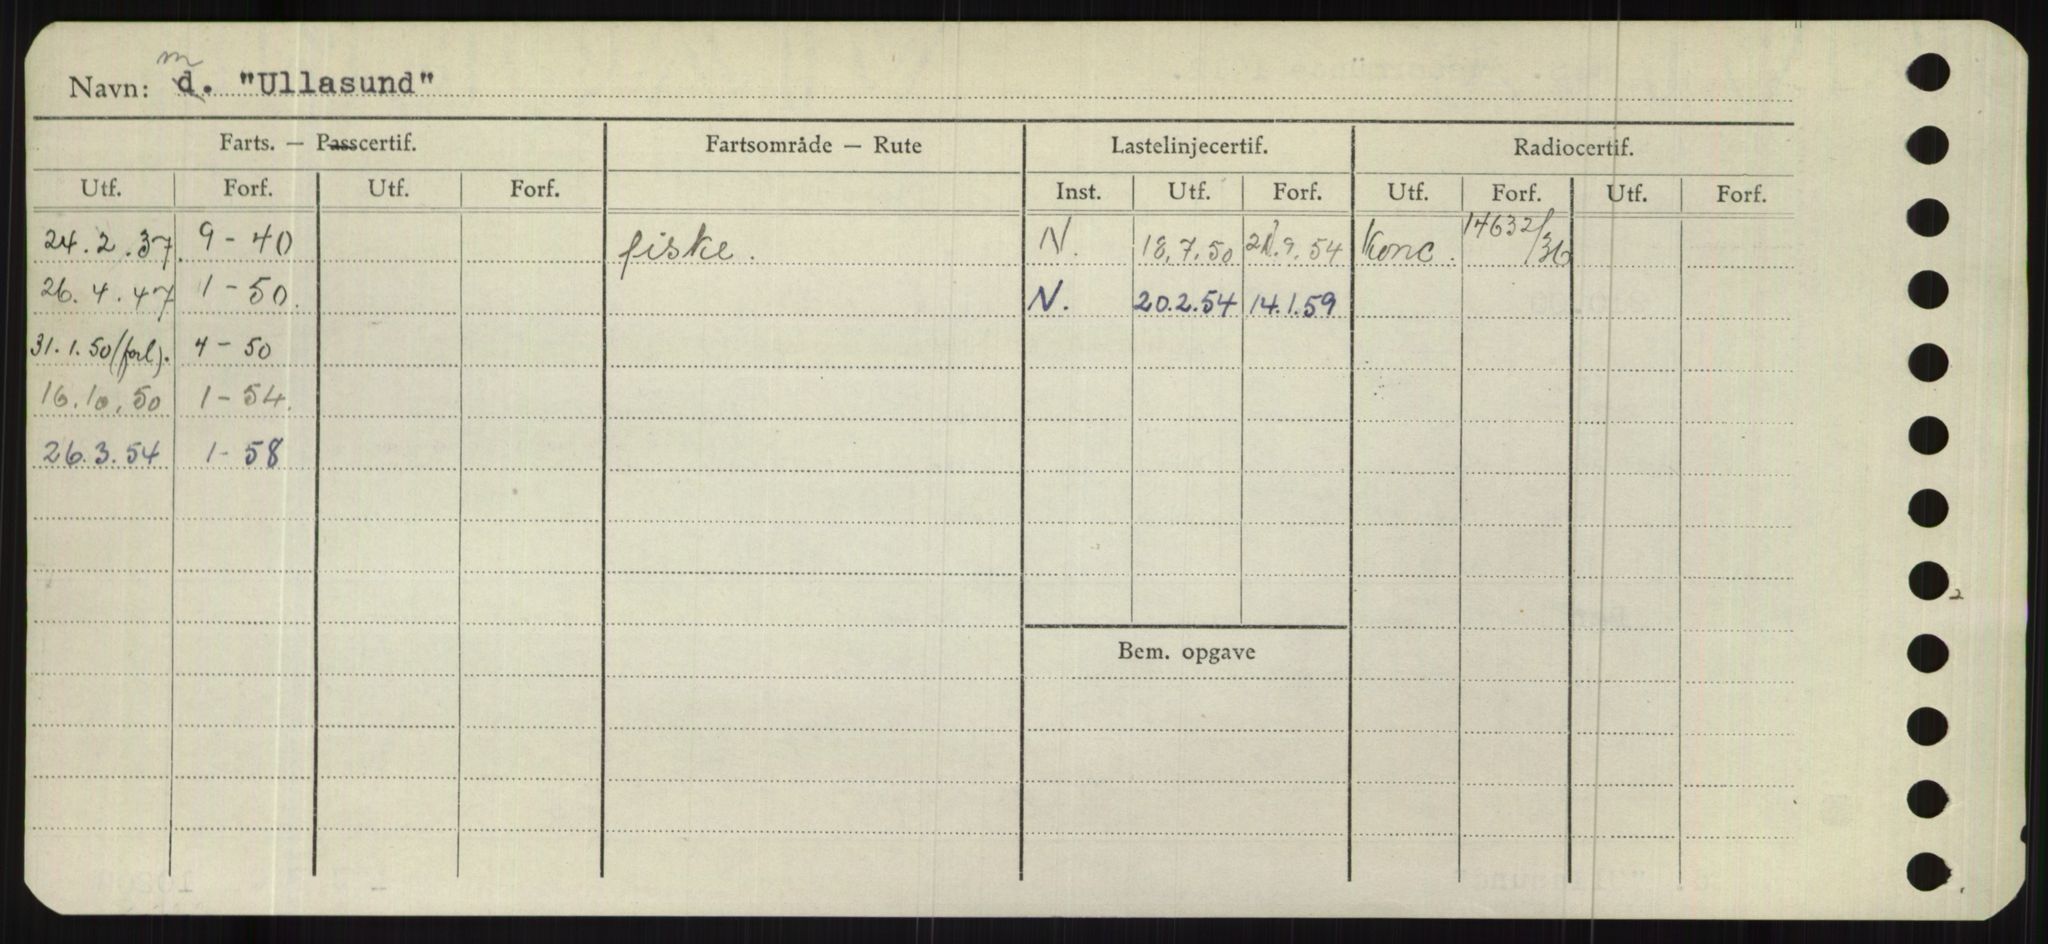 m
Navn: d. "Ullasund"
Farts. — Passcertif. Fartsområde — Rute Lastelinjecertif. Radiocertif.
Utf. Forf. Utf. Forf. Inst. Utf. Forf. Utf. Forf. Utf. Forf.
24.2.37. 9-40 fiske. N. 18.7.50 .9.54 Konc. 14632/36
26.4.47 1-50. N. 20.2.54 14.1.59
31.1.50 (forl). 4-50
16.10.50 1-54.
26.3.54 1-58
Bem. opgave